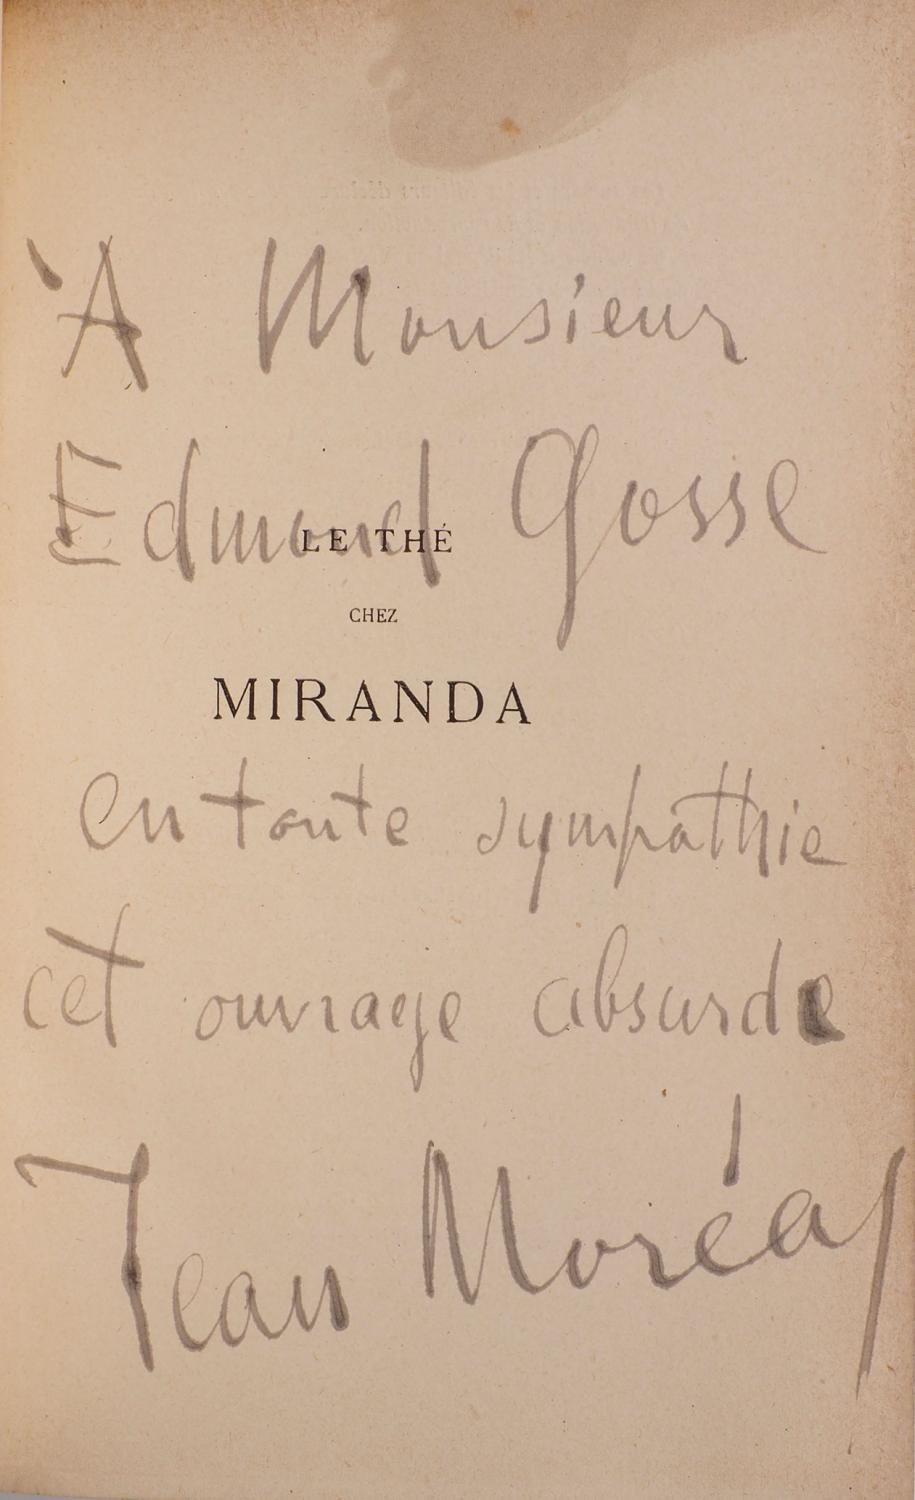 À Monsieur
Edmond Gosse
LE THÉ
CHEZ
MIRANDA
en toute sympathie
cet ouvrage absurde
Jean Moréas